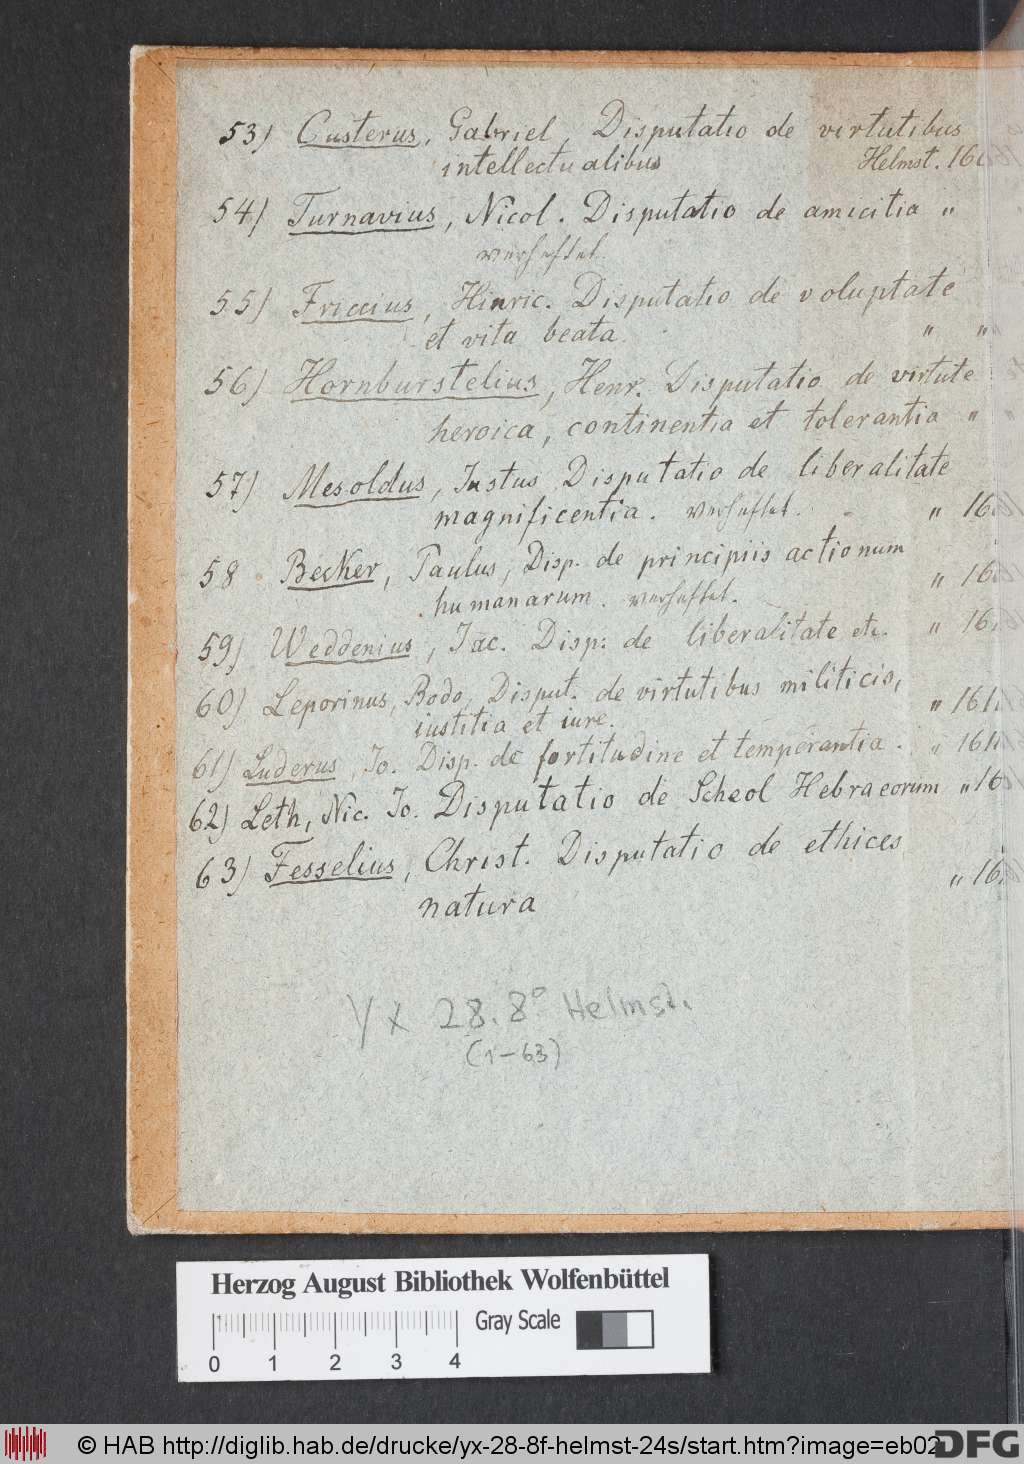 53) Custerus, Gabriel, Disputatio de virtutibus
intellectualibus Helmst. 16
54) Turnavius, Nicol. Disputatio de amicitia "
verheftet.
55) Friccius, Hinric. Disputatio de voluptate
et vita beata. " "
56) Hornburstelius, Henr. Disputatio de virtute
heroica, continentia et tolerantia "
57) Mesoldus, Justus Disputatio de liberalitate
magnificentia. verheftet. " 16
58 Becker, Paulus, Disp. de principiis actionum
humanarum. verheftet. " 16
59) Weddenius, Jac. Disp: de liberalitate etc. " 16
60) Leporinus, Bodo, Disput. de virtutibus militicis,
iustitia et iure. " 161
61) Luderus, Jo. Disp. de fortitudine et temperantia. " 161
62) Leth, Nic. Jo. Disputatio de Scheol Hebraeorum " 16
63) Fesselius, Christ. Disputatio de ethices
natura " 16
Yx 28. 8° Helmst.
(1-63)
Herzog August Bibliothek Wolfenbüttel
Gray Scale
0 1 2 3 4
© HAB http://diglib.hab.de/drucke/yx-28-8f-helmst-24s/start.htm?image=eb02
DFG